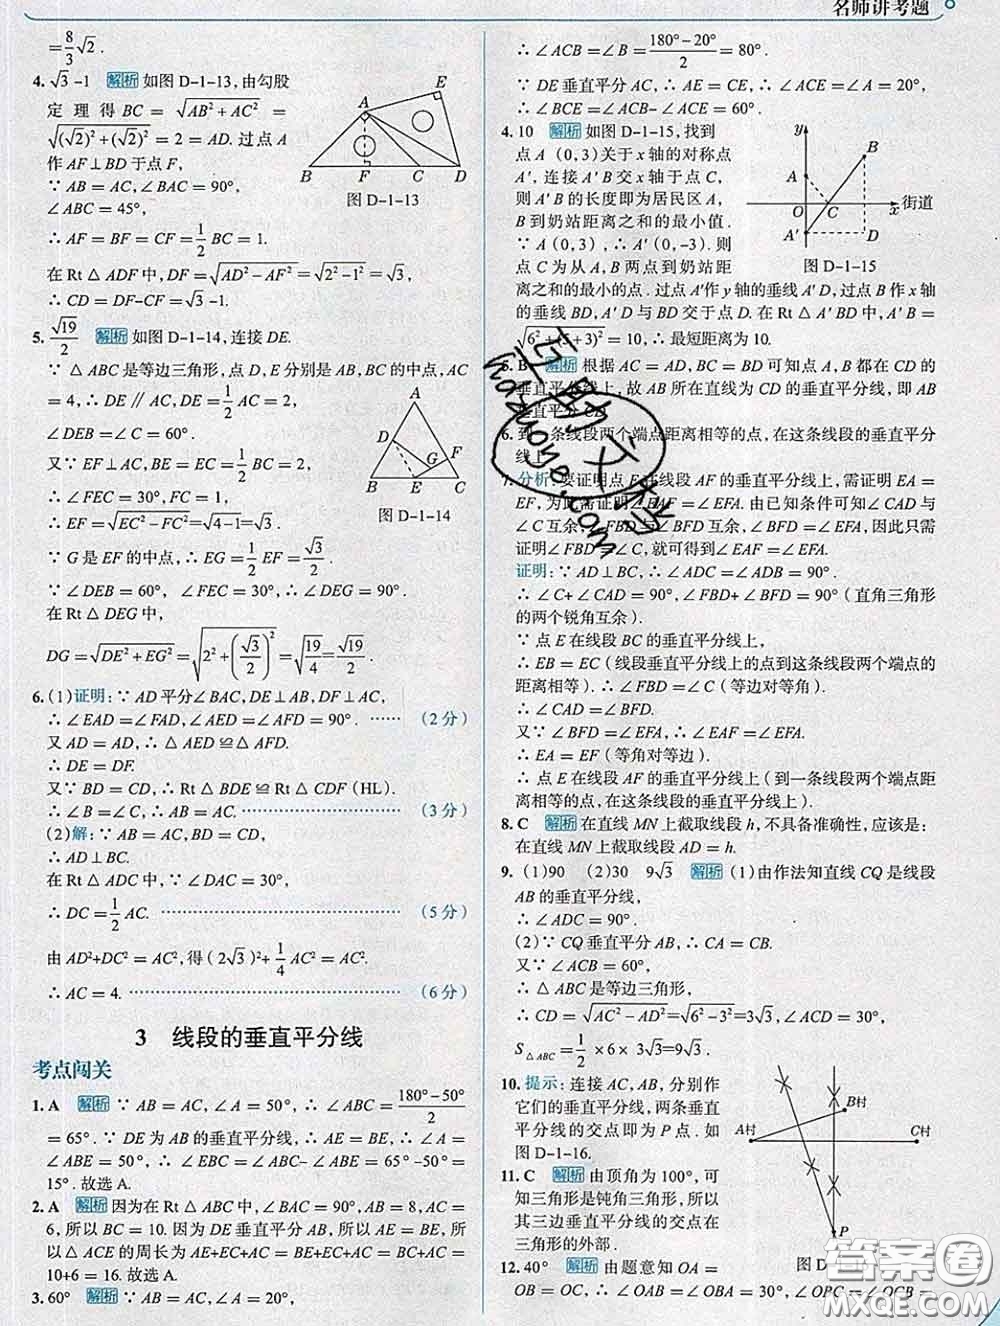 名师讲考题
=8/3√2.
4. √3-1 解析 如图 D-1-13,由勾股
定理得 BC=√(AB²+AC²)=
√((√2)²+(√2)²)=2=AD. 过点 A
作 AF⊥BD 于点 F,
∵ AB=AC,∠BAC=90°,
∠ABC=45°,
∴ AF=BF=CF=1/2 BC=1.
在 Rt△ADF 中,DF=√(AD²-AF²)=√(2²-1²)=√3,
∴ CD=DF-CF=√3-1.
A
E
B
F
C
D
图 D-1-13
5. √19/2 解析 如图 D-1-14,连接 DE.
∵ △ABC 是等边三角形,点 D,E 分别是 AB,BC 的中点,AC
=4,∴ DE∥AC,DE=1/2 AC=2,
∠DEB=∠C=60°.
又∵ EF⊥AC,EC=1/2 BC=2,
∴ ∠FEC=30°,FC=1,
∴ EF=√(EC²-FC²)=√(4-1)=√3.
∵ G 是 EF 的中点,∴ EG=1/2 EF=√3/2.
∵ ∠DEB=60°, ∠FEC=30°,∴ ∠DEG=90°.
在 Rt△DEG 中,
DG=√(DE²+EG²)=√(2²+(√3/2)²)=√(19/4)=√19/2.
A
D
F
G
B
E
C
图 D-1-14
6. (1)证明:∵ AD 平分∠BAC,DE⊥AB,DF⊥AC,
∴ ∠EAD=∠FAD,∠AED=∠AFD=90°. ……(2分)
又 AD=AD,∴ △AED≌△AFD.
∴ DE=DF.
又∵ BD=CD,∴ Rt△BDE≌Rt△CDF(HL).
∴ ∠B=∠C,∴ AB=AC. ……(3分)
(2)解:∵ AB=AC,BD=CD,
∴ AD⊥BC.
在 Rt△ADC 中,∵ ∠DAC=30°,
∴ DC=1/2 AC. ……(5分)
由 AD²+DC²=AC²,得(2√3)²+1/4 AC²=AC².
∴ AC=4. ……(6分)
3 线段的垂直平分线
考点闯关
1. A 解析 ∵ AB=AC,∠A=50°,∴ ∠ABC=(180°-50°)/2
=65°. ∵ DE 为 AB 的垂直平分线,∴ AE=BE,∴ ∠A=
∠ABE=50°,∴ ∠EBC=∠ABC-∠ABE=65°-50°=
15°. 故选 A.
2. A 解析 因为在 Rt△ABC 中,∠BAC=90°,AB=8,AC=
6,所以 BC=10. 因为 DE 垂直平分 AB,所以 AE=BE,所
以△ACE 的周长为 AE+EC+AC=BE+EC+AC=BC+AC=
10+6=16. 故选 A.
3. 60° 解析 ∵ AB=AC,∠A=20°,
∴ ∠ACB=∠B=(180°-20°)/2=80°.
∵ DE 垂直平分 AC,∴ AE=CE,∴ ∠ACE=∠A=20°,
∴ ∠BCE=∠ACB-∠ACE=60°.
4. 10 解析 如图 D-1-15,找到
点 A(0,3)关于 x 轴的对称点
A′,连接 A′B 交 x 轴于点 C,
则 A′B 的长度即为居民区 A,
B 到奶站距离之和的最小值.
∵ A(0,3),∴ A′(0,-3). 则
点 C 为从 A,B 两点到奶站距
离之和的最小的点. 过点 A′作 y 轴的垂线 A′D,过点 B 作 x 轴
的垂线 BD,A′D 与 BD 交于点 D. 在 Rt△A′BD 中,A′B=
√(6²+(5+3)²)=10,∴ 最短距离为 10.
y
B
A
O
C
x
街道
A′
D
图 D-1-15
5. B 解析 根据 AC=AD,BC=BD 可知点 A,B 都在 CD 的
垂直平分线上,故 AB 所在直线为 CD 的垂直平分线,即 AB
垂直平分 CD.
6. 到一条线段两个端点距离相等的点,在这条线段的垂直平分
线上
7. 分析:要证明点 E 在线段 AF 的垂直平分线上,需证明 EA=
EF,为此需证明∠EAF=∠EFA. 由已知条件可知∠CAD 与
∠C 互余,∠FBD 与∠BFD 互余,∠BFD=∠EFA,因此只需
证明∠FBD=∠C,就可得到∠EAF=∠EFA.
证明:∵ AD⊥BC,∴ ∠ADC=∠ADB=90°.
∴ ∠C+∠CAD=90°,∠FBD+∠BFD=90°(直角三角形
的两个锐角互余).
∵ 点 E 在线段 BC 的垂直平分线上,
∴ EB=EC(线段垂直平分线上的点到这条线段两个端点的
距离相等). ∴ ∠FBD=∠C(等边对等角).
∴ ∠CAD=∠BFD.
又∵ ∠BFD=∠EFA,∴ ∠EAF=∠EFA.
∴ EA=EF(等角对等边).
∴ 点 E 在线段 AF 的垂直平分线上(到一条线段两个端点距
离相等的点,在这条线段的垂直平分线上).
8. C 解析 在直线 MN 上截取线段 h,不具备准确性,应该是:
在直线 MN 上截取线段 AD=h.
9. (1)90 (2)30 9√3 解析 (1)由作法知直线 CQ 是线段
AB 的垂直平分线,
∴ ∠ADC=90°.
(2)∵ CQ 垂直平分 AB,∴ CA=CB.
又∵ ∠ACB=60°,
∴ △ABC 是等边三角形,
∴ CD=√(AC²-AD²)=√(6²-3²)=3√3,∠ACD=30°,
S△ABC=1/2×6×3√3=9√3.
10. 提示:连接 AC,AB,分别作
它们的垂直平分线,两条垂直平
分线的交点即为 P 点. 如
图 D-1-16.
A村
B村
C村
P
图 D-1-16
11. C 解析 由顶角为 100°,可
知三角形是钝角三角形,所以
其三边垂直平分线的交点在
三角形的外部.
12. 40° 解析 由题意知 OA=
OB=OC,∴ ∠OAB=∠OBA=30°,∠OBC=∠OCB
互助文档
hazuoye.com
答案圈
MXQE.COM